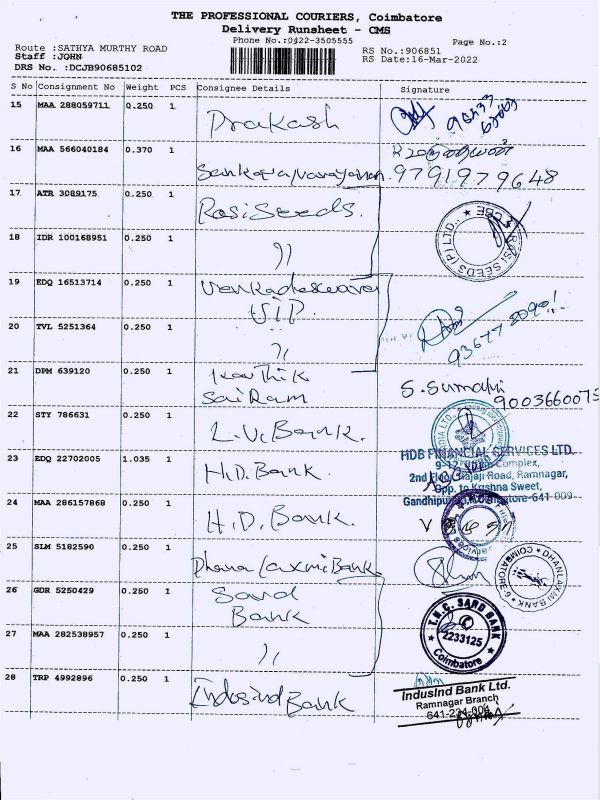 THE PROFESSIONAL COURIERS, Coimbatore
Delivery Runsheet - CMS
Phone No.:0422-3505555
Page No.:2
Route :SATHYA MURTHY ROAD
Staff :JOHN
DRS No. :DCJB90685102
RS No.:906851
RS Date:16-Mar-2022
S No Consignment No Weight PCS Consignee Details Signature
15 MAA 288059711 0.250 1 Prakash
16 MAA 566040184 0.370 1 Sankaranarayanan 9791979648
17 ATR 3089175 0.250 1 Rasi Seeds.
RASI SEEDS (P) LTD., ★ CBE
18 IDR 100168951 0.250 1 〃
19 EDQ 16513714 0.250 1 Venkadeswara
20 TVL 5251364 0.250 1 〃
21 DPM 639120 0.250 1 Karthik
Sai Ram
S. Sumathi
9003660075
22 STY 786631 0.250 1 L.V. Bank.
23 EDQ 22702005 1.035 1 H.D. Bank.
HDB FINANCIAL SERVICES LTD.
Complex,
2nd Floor, Rajaji Road, Ramnagar,
Opp. to Krishna Sweet,
Gandhipuram, Coimbatore-641 009
24 MAA 286157868 0.250 1 H.D. Bank.
25 SLM 5182590 0.250 1 Dhana Laxmi Bank
DHANLAXMI BANK ★ COIMBATORE
26 GDR 5250429 0.250 1 Sard
Bank
T.N.C. SARD BANK
2233125
Coimbatore
27 MAA 282538957 0.250 1 〃
28 TRP 4992896 0.250 1 Indusind Bank
IndusInd Bank Ltd.
Ramnagar Branch